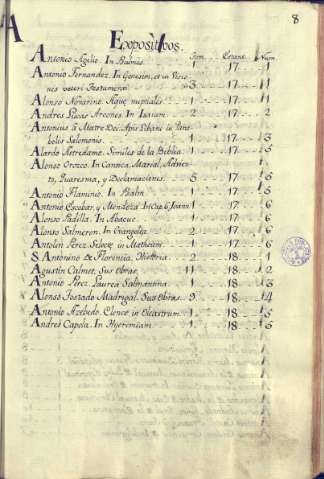 8
A
Expositivos.
Tom. Estante. Num.
Antonio Agelio. In Psalmos 1 17 1
Antonio Fernandez. In Genesim, et in Visio
nes veteri Testamenti 3 17 1
Alonso Novarino. Aquæ nuptiales 1 17 1
Andres Lucas Arcones. In Isaiam 2 17 2
Antonius à Matre Dei. Apis Libani in
bolus Salomonis 1 17 3
Alardo Símiles de la Biblia 1 17 5
Alonso Orozco. In Cantica, Marial, Advien
to, Quaresma, y Declamaciones. 5 17 5
Antonio Flaminio. In Psalm 1 17 5
Antonio Escobar, y Mendoza 1 17 6
Alonso Padilla. In Abacuc 1 17 6
Alonso Salmeron. In Evangelia 2 17 6
Antolin Perez. in Matheum 1 17 6
S. Antonino de Florencia, Historia. 2 18 1
Agustin Calmet, Sus Obras. 11 18 2
Antonio Perez Laurea Salmantina 1 18 3
Alonso Tostado Madrigal. Sus Obras. 9 18 4
Antonio Azebedo. Elenco. in 1 18 5
Andres Capela. In Hyeremiam 1 18 5